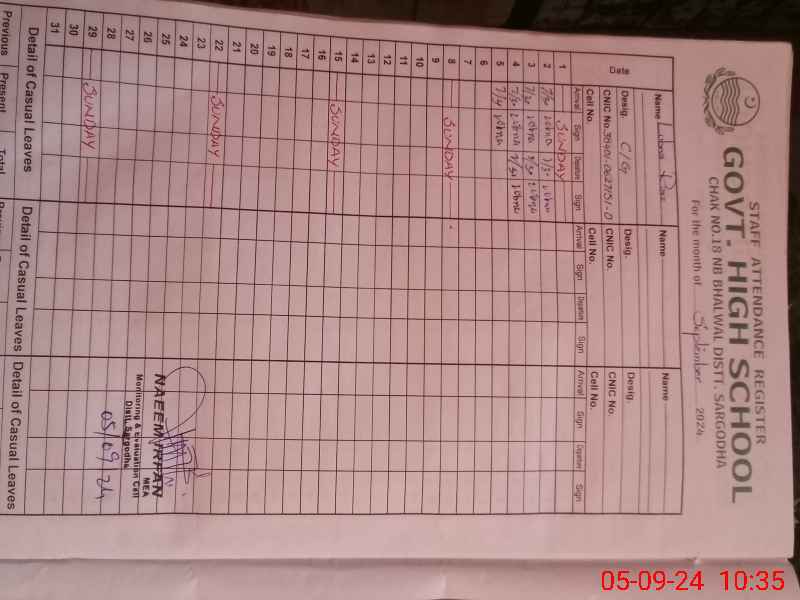 STAFF ATTENDANCE REGISTER
GOVT. HIGH SCHOOL
CHAK NO.18 NB BHALWAL DISTT. SARGODHA
For the month of September 2024
Name Lubna Name Name
Desig. C/G Desig. Desig.
CNIC No. 38401-0627151-0 CNIC No. CNIC No.
Cell No. Cell No. Cell No.
Date Arrival Sign Departure Sign Arrival Sign Departure Sign Arrival Sign Departure Sign
1 SUNDAY
2
3
4
5
6
7
8 SUNDAY
9
10
11
12
13
14
15 SUNDAY
16
17
18
19
20
21
22 SUNDAY
23
24
25
26
27
28
29 SUNDAY
30
31
NAEEM IRFAN
MEA
Monitoring & Evaluation Cell
Distt. Sargodha
05/09/24
Detail of Casual Leaves Detail of Casual Leaves Detail of Casual Leaves
Previous Present Total
05-09-24 10:35